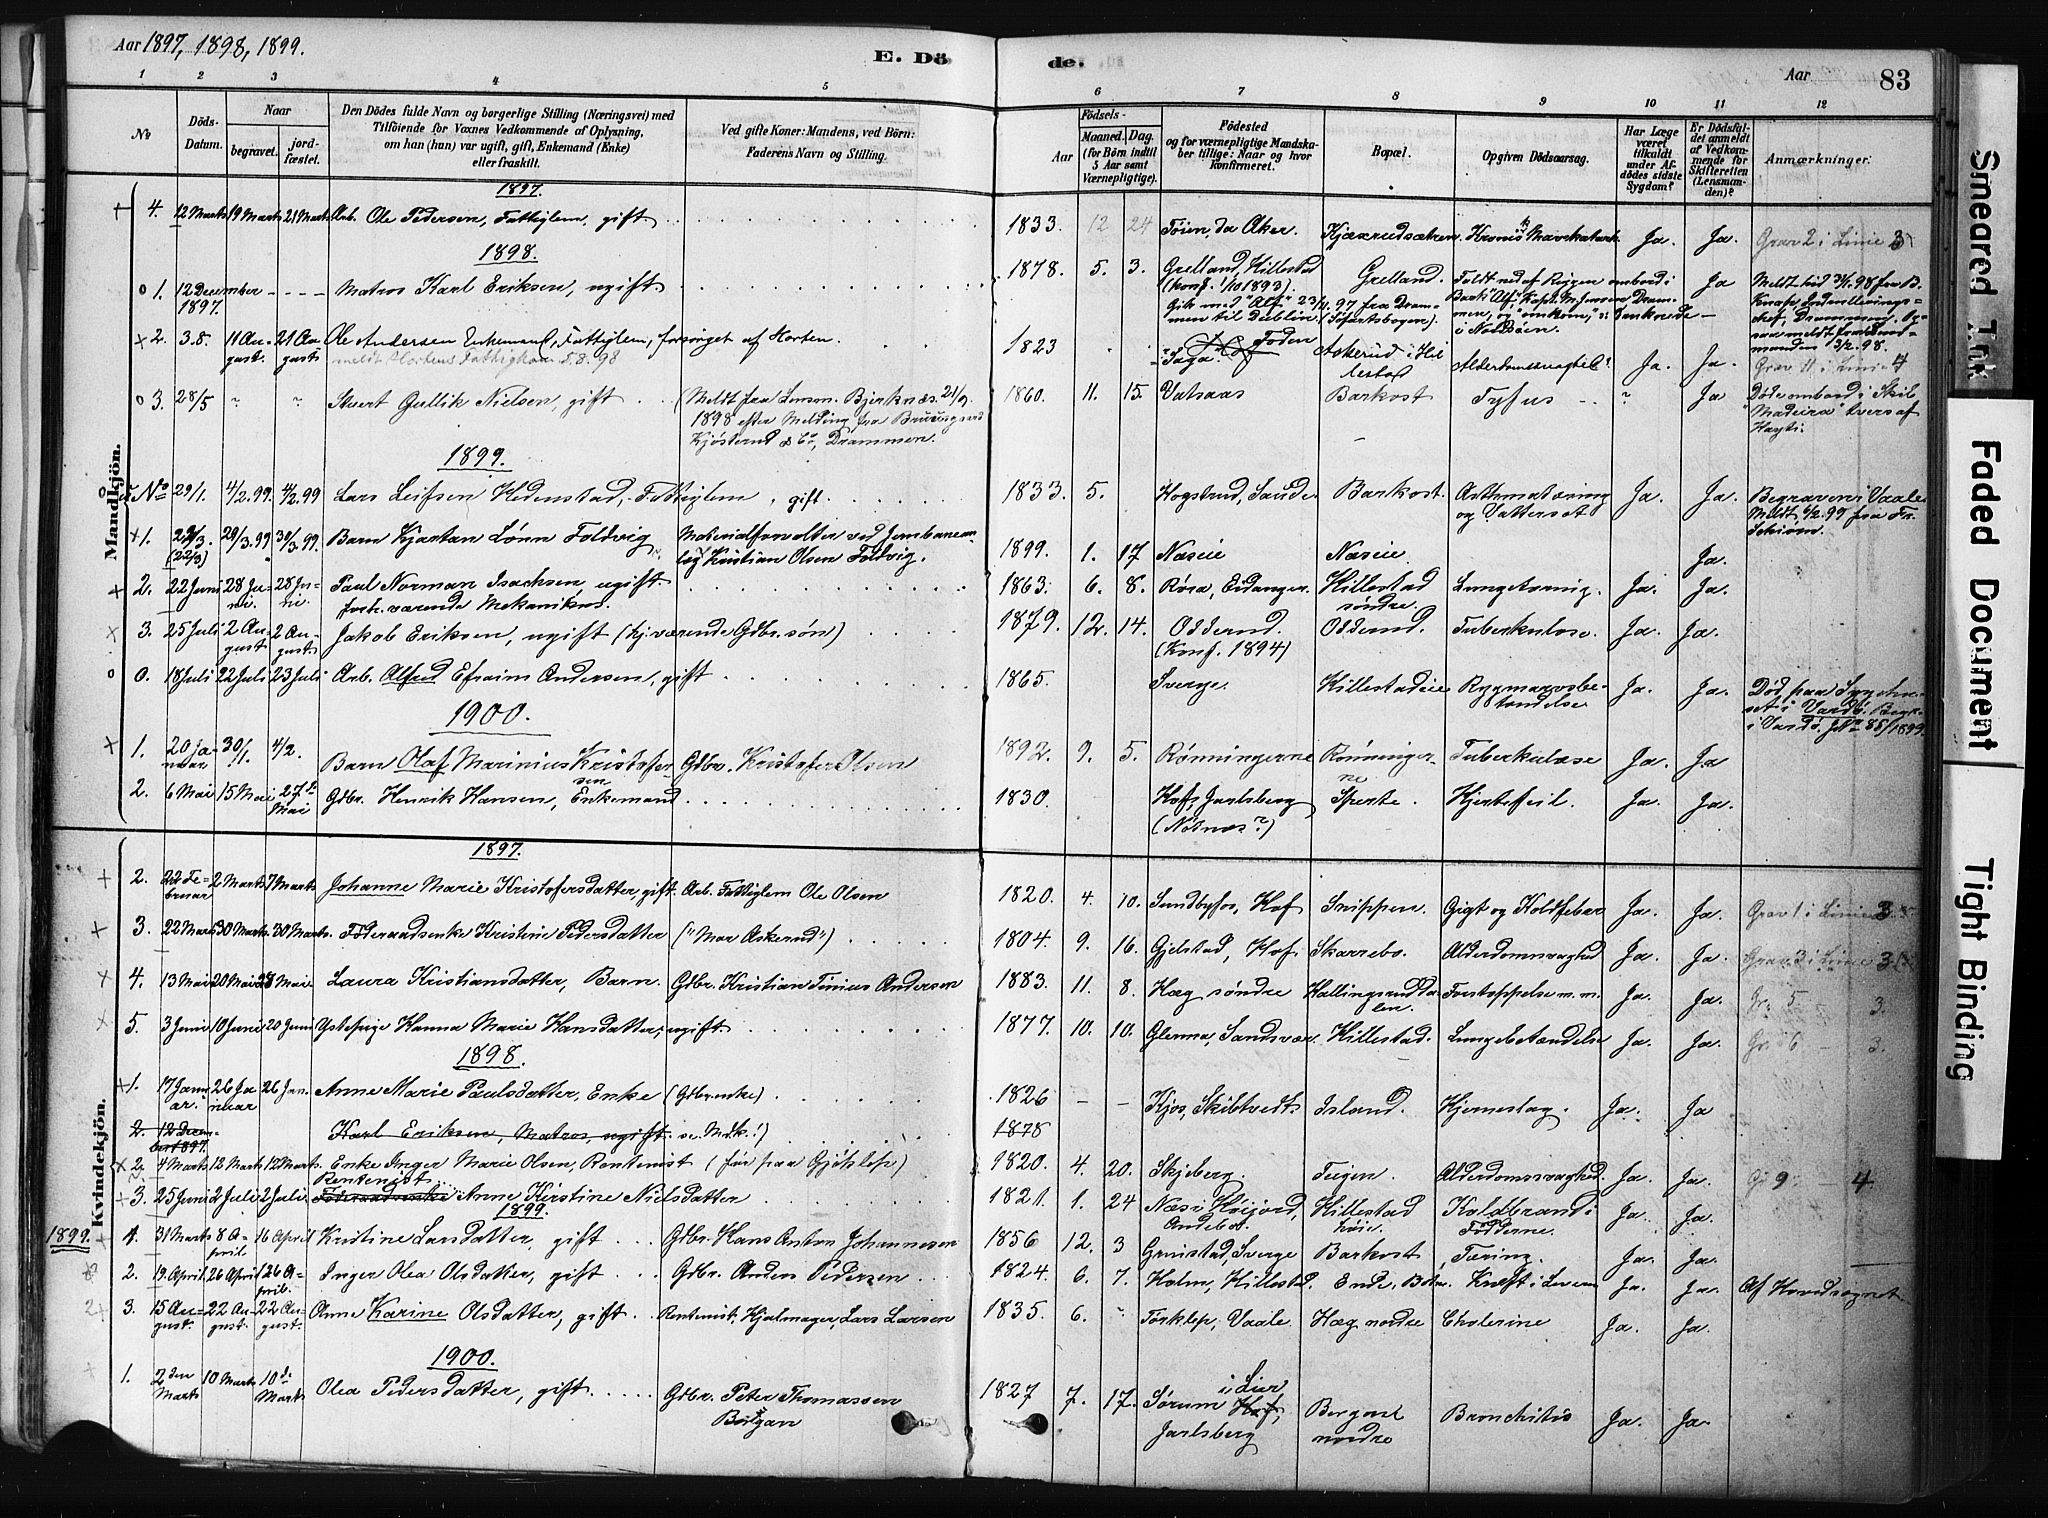 Aar 1897, 1898, 1899.
E. Dö
de.
Aar
83
1 2 3 4 5 6 7 8 9 10 11 12
No
Döds-Datum.
Naar
begravet.
jord-fæstet.
Den Dödes fulde Navn og borgerlige Stilling (Næringsvei) med
Tilföiende for Voxnes Vedkommende af Oplysning,
om han (hun) var ugift, gift, Enkemand (Enke)
eller fraskilt.
Ved gifte Koner: Mandens, ved Börn:
Faderens Navn og Stilling.
Födsels-
Aar
Maaned. Dag.
(for Börn indtil
5 Aar samt
Værnepligtige).
Födested
og for værnepligtige Mandska-
ber tillige: Naar og hvor
konfirmeret.
Bopæl.
Opgiven Dödsaarsag.
Har Læge
været
tilkaldt
under Af-
dödes sidste
Sygdom?
Er Dödsfal-
det anmeldt
af Vedkom-
mende for
Skifteretten
(Lensman-
den)?
Anmærkninger.
Mandkjön.
1897.
4. 12 Marts 19 Marts 21 Marts Arb. Ole Pedersen, Fattiglem, gift. 1833. 12 24 Töien, da Aker. Kjæxrudsætren. Kronisk Mavekatarrh Ja. Ja. Grav 2 i Linie 3
1898.
1. 12 December 1897. Matros Karl Eriksen, ugift 1878. 5. 3. Grelland, Hillestad (konf. 1/10 1893). Grelland. Ja
Gik med "Alf" 23/11. 97 fra Drammen til Dublin. (Söfartsbogen).
Faldt ned af Riggen ombord i Bark "Alf", Kapt. M. Jensen, Drammen, og "omkom," i Nordsöen.
2. 3.8. 11 August 21 August Ole Andersen Enkemand, Fattiglem, forsörget af Horten. 1823 Foden Askerud i Hillestad Alderdomssvaghed Ja. Ja. Grav 11 i Linie 4
meldt Hortens Fattigkom. 5.8.98
3. 28/5 " " Stuert Gullik Nielsen, gift (Meldt fra Lensm. Bjerknæs 21/9 1860. 11. 15. Valsaas Barkost Tyfus ? Ja Döde ombord i Skib
1898 efter Melding fra Bruusgaard "Madeira" tvers af
Kjösterud & Co, Drammen. Hayti.
1899.
No 29/1. 4/2.99. 4/2.99 Lars Leifsen Hedenstad, Fattiglem, gift. 1833. 5. Hogstrud, Sande Barkost. Asthmatæring og Vattersot Ja. Ja. Begraven i Vaale
1. 22/3. (22/3) 29/3.99 30/3.99. Barn Kjartan Lönn Foldvig Materialforvalter ved Jernbanean-
læg Kristian Olsen Foldvig. 1899. 1. 17 Næseie Næseie. Ja.
2. 22 Juni 28 Juni. 28 Juni. Paul Norman Isachsen ugift 1863. 6. 8. Röra, Eidanger. Hillestad söndre. Lungetæring. Ja. Ja.
forh. værende Mekanikus.
3. 25 Juli 2 August 2 August. Jakob Eriksen, ugift (hj. værende Gdbr. sön) 1879. 12. 14. Odderud. (Konf. 1894) Odderud. Tuberkulose. Ja. Ja.
0. 18 Juli 22 Juli 23 Juli Arb. Alfred Efraim Andersen, gift 1865. Sverge. Hillestadeie Rygmarvsbetændelse Ja. Ja. Död paa Sygehuset i Vardö.
1900.
1. 20 Januar 30/1. 4/2. Barn Olaf Marinius Kristoffersen Gdbr. Kristofer Olsen 1892. 9. 5. Rönningerne Rönningerne Tuberkulose Ja. Ja
2. 6 Mai 15 Mai 27de Mai Gdbr. Henrik Hansen, Enkemand 1830. Hof, Jarlsberg (Nötnæs?) Sperte. Hjertefeil. Ja. Ja.
Kvindekjön.
1897.
2. 22 Februar 2 Marts 7 Marts Johanne Marie Kristofersdatter, gift. Arb. Fattiglem Ole Olsen 1820. 4. 10. Sundbyfos, Hof Snippen. Gigt og Koldfeber Ja. Ja. Grav 1 i Linie 3
3. 22 Marts 30 Marts 30 Marts. Föderaadsenke Kristine Pedersdatter ("Mor Askerud") 1804. 9. 16. Gjelstad, Hof. Skarrebo. Alderdomssvaghed Ja. Ja. Grav 3 i Linie 3
4. 13 Mai 20 Mai 28 Mai Laura Kristiansdatter, Barn. Gdbr. Kristian Tinius Andersen 1883. 11. 8. Hæg söndre Hallingsruddalen. Forstoppelse m.m. Ja. Ja. Gr. 5 3.
5. 3 Juni 10 Juni 20 Juni Ystepige Hanna Marie Hansdatter, ugift 1877. 10. 10. Glenna, Sandsvær. Hillestad. Lungebetændelse Ja. Ja. Gr. 6 3.
1898.
1. 17 Januar. 26 Januar 26 Jan. Anne Marie Paulsdatter, Enke (Gdbr.enke) 1826 – – Kjos, Skibtvedt Island. Hjerneslag. Ja. Ja
2. 12 December 1897. Karl Eriksen, Matros, ugift. se Mdk.!) 1878
2. 4 Marts 12 Marts 12 Marts. Enke Inger Marie Olsen, Rentenist (för paa Gjötslep) 1820. 4. 20. Skjeberg. Teigen. Alderdomssvaghed. Ja. Ja. Gr 9 – 4.
Rentenist
3. 25 Juni 2 Juli 2 Juli Föderaadsenke Anne Kirstine Nielsdatter 1821. 1. 24 Næs i Höijord, Andebot. Hillestad höie. Koldbrand i Födderne. Ja. Ja.
1899. 1899.
1. 31 Marts 8 April 16 April Kristine Larsdatter, gift Gdbr. Hans Anton Johannesen 1856 12. 3 Grinstad, Sverge Barkost Tæring. Ja. Ja.
2. 19 April. 26 April 26 April. Inger Olea Olsdatter, gift Gdbr. Anders Pedersen 1824. 6. 7. Holm, Hillestad. Ende, Botne. Kræft i Leveren Ja. Ja. Af Hovedsognet.
3. 15 August. 22 August. 22 August. Anne Karine Olsdatter, gift Rentenist, Hjulmager, Lars Larsen 1835. 6. " Törklep, Vaale. Hæg nordre Cholerine Ja. Ja.
1900.
1. 2den Marts 10 Marts 10de Marts Olea Pedersdatter, gift Gdbr. Peter Thomassen 1827 7. 17. Sörum i Lier Hof, Jarlsberg Bergane nordre Bronchitis Ja. Ja.
Smeared Ink
Faded Document
Tight Binding